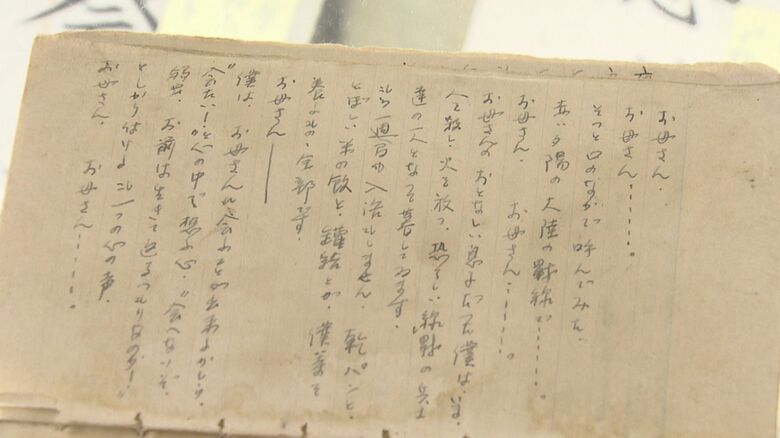 お母さん、
お母さん……。
そっと口のなかで呼んでみた、
赤い夕陽の大陸の戰線で……。
お母さん、お母さん……。
お母さんのおとなしい息子だった僕は、いま、
人を殺し、火を放つ、恐ろしい戰線の兵士
達の一人となって暮してゐます。
一週間も入浴しません、乾パンと、
とぼしい米の飯と、罐詰とが、僕等を
養ふもの、全部です。
お母さん――
僕は、お母さんに会ふことが出来るかしら、
“会たい！”と心の中で想ふ心、“会へないぞ、
お前は生きて還るつもりなのか！”
としかり付けるこ一つの心の声、
お母さん、お母さん……。